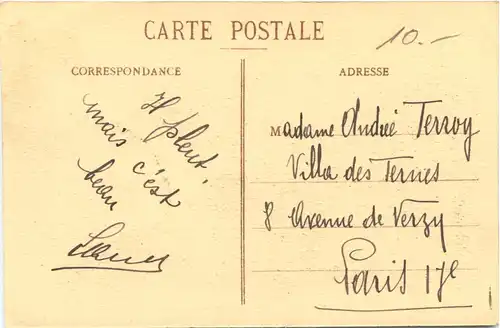 CARTE POSTALE
10.-
CORRESPONDANCE
Il pleut,
mais c'est
beau
ADRESSE
Madame André Terroy
Villa des Ternes
8 Avenue de Verzy
Paris 17e